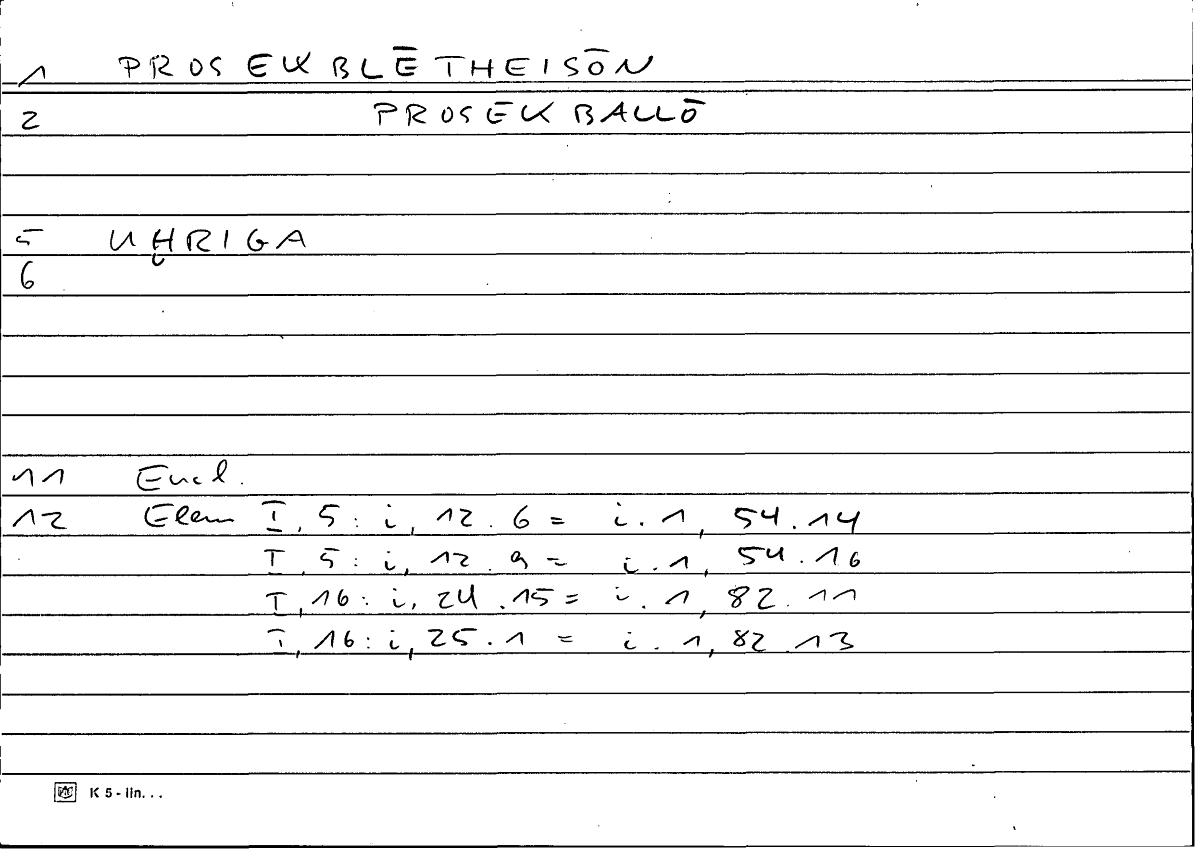 1 PROSEKBLĒTHEISŌN
2 PROSEKBALLŌ
5 UḪRIGA
6
11 Eucl.
12 Elem I, 5: i, 12.6 = i.1, 54.14
I, 5: i, 12.9 = i.1, 54.16
I, 16: i, 24.15 = i.1, 82.11
I, 16: i, 25.1 = i.1, 82.13
K 5 - lin. . .